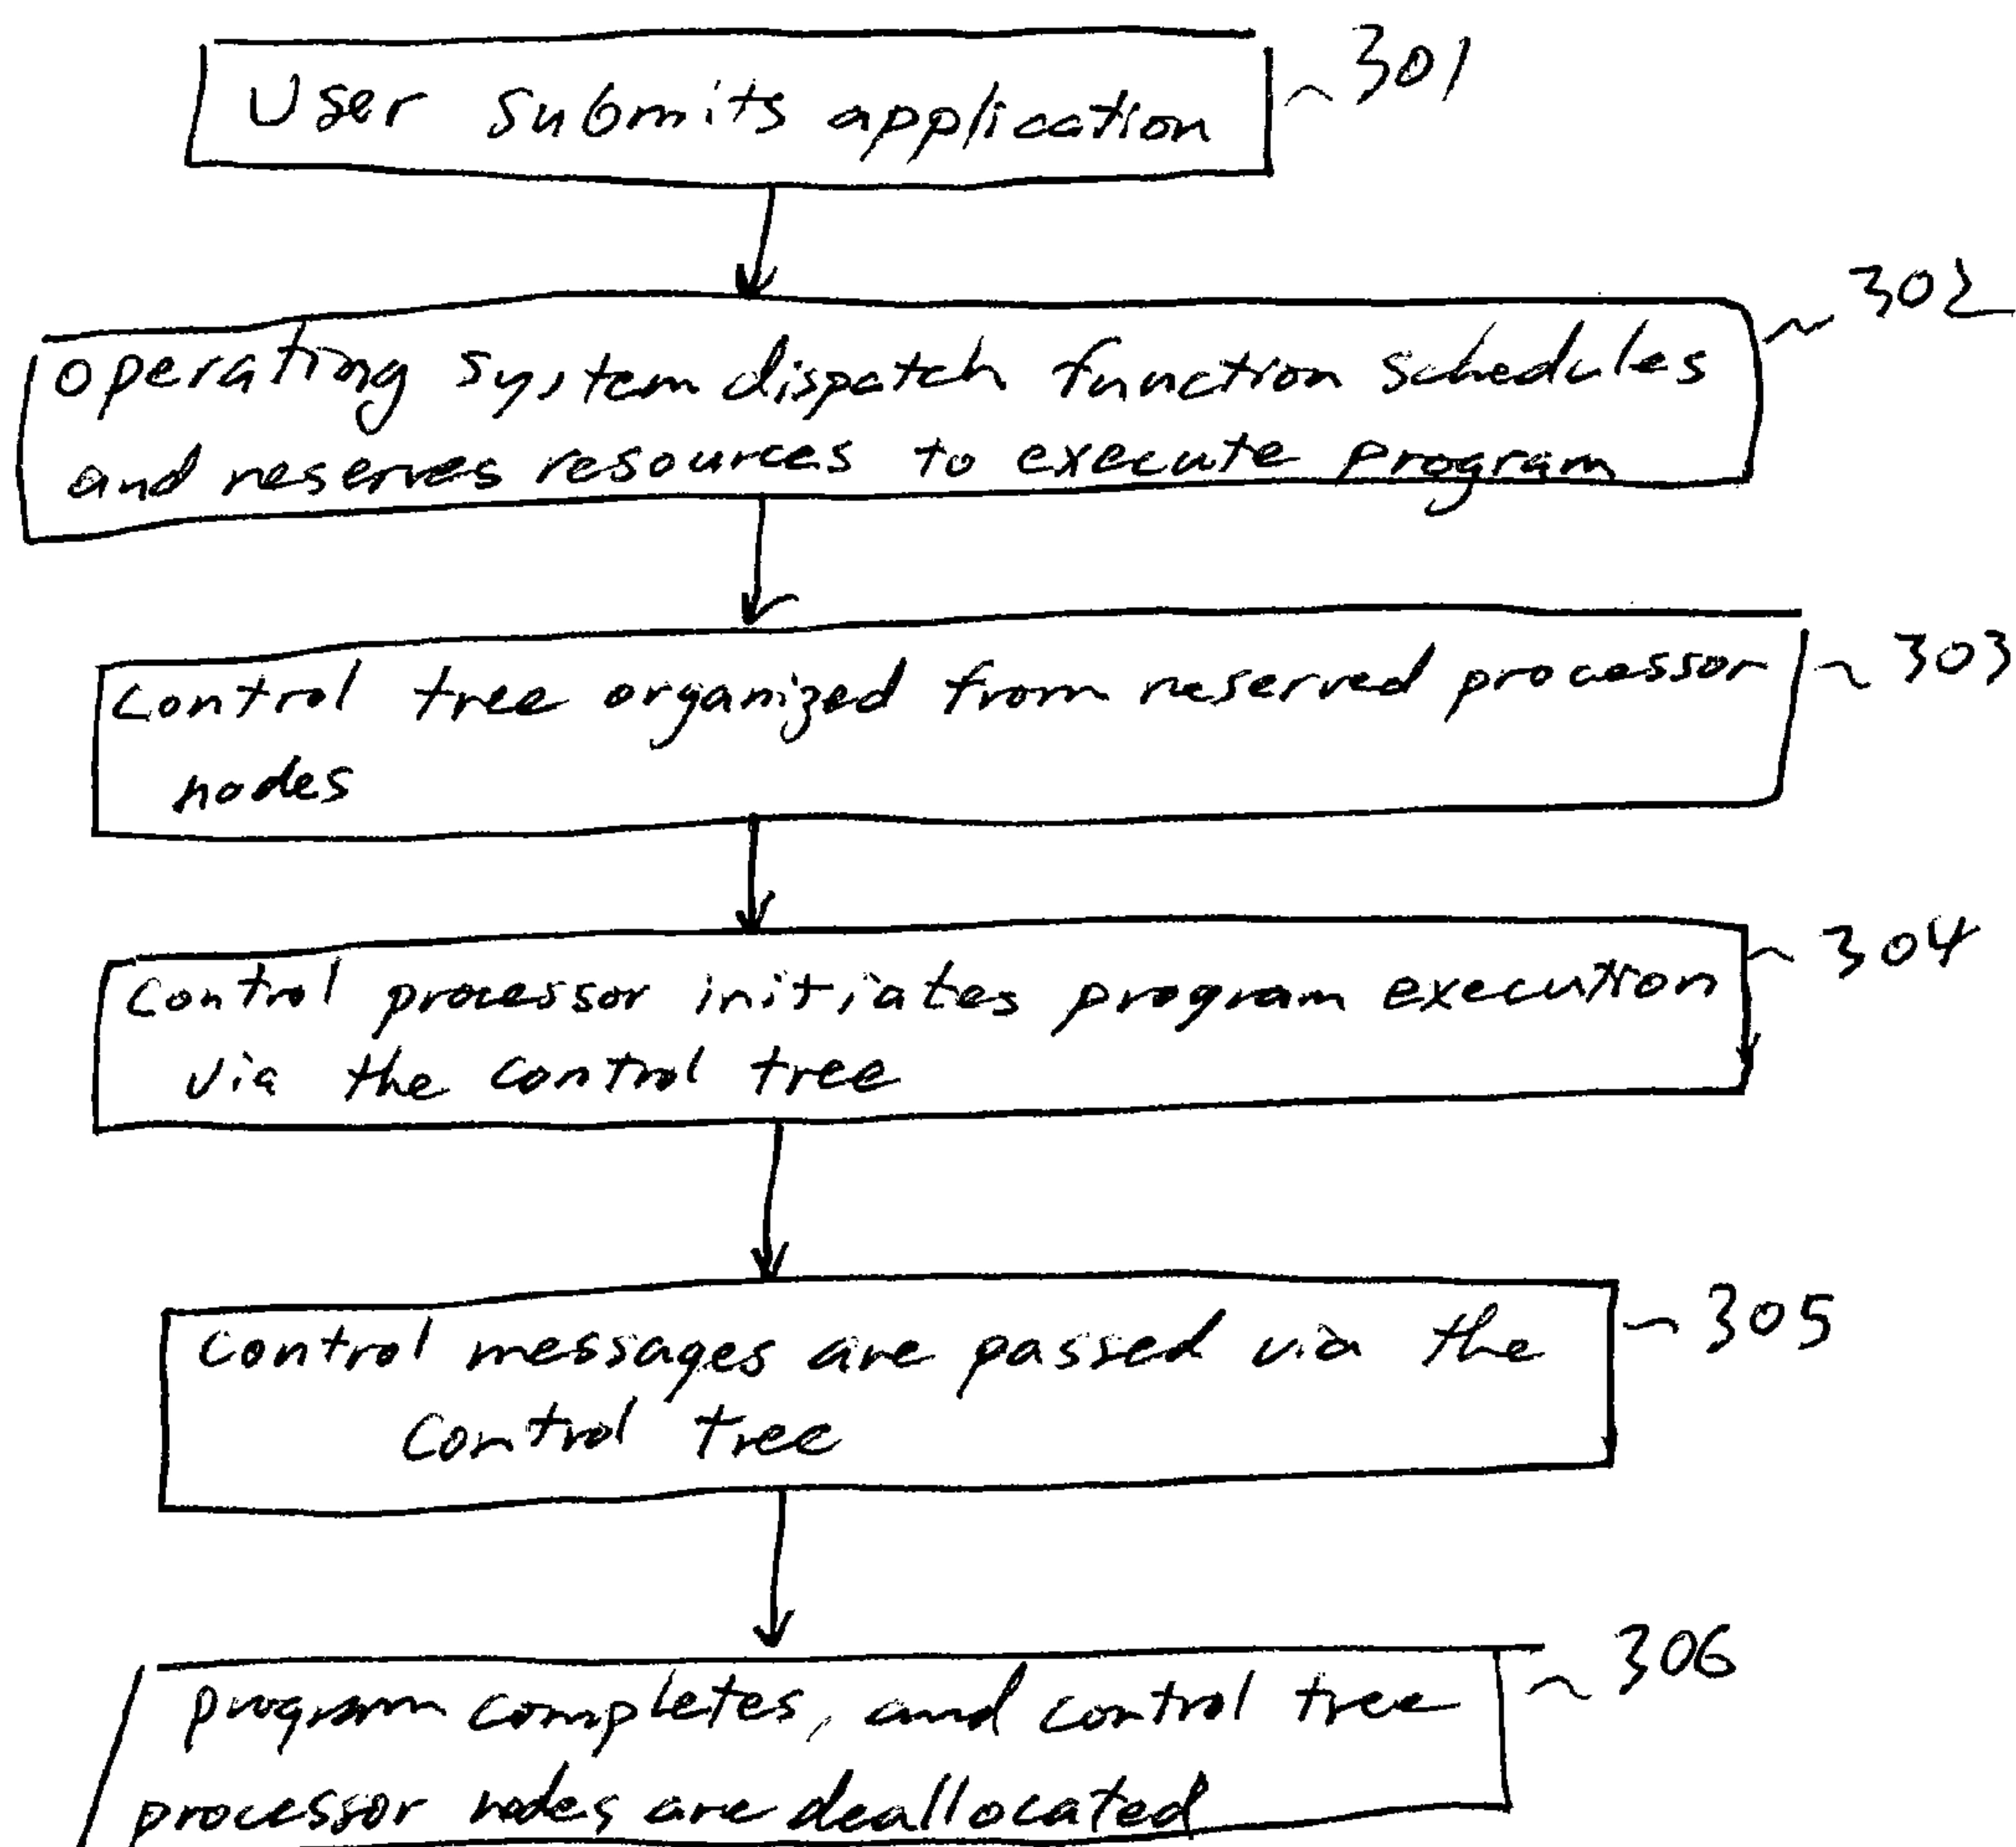 User submits application ~ 301
operating system dispatch function schedules ~ 302
and reserves resources to execute program
Control tree organized from reserved processor ~ 303
nodes
Control processor initiates program execution ~ 304
via the control tree
Control messages are passed via the ~ 305
Control tree
program completes, and control tree ~ 306
processor nodes are deallocated